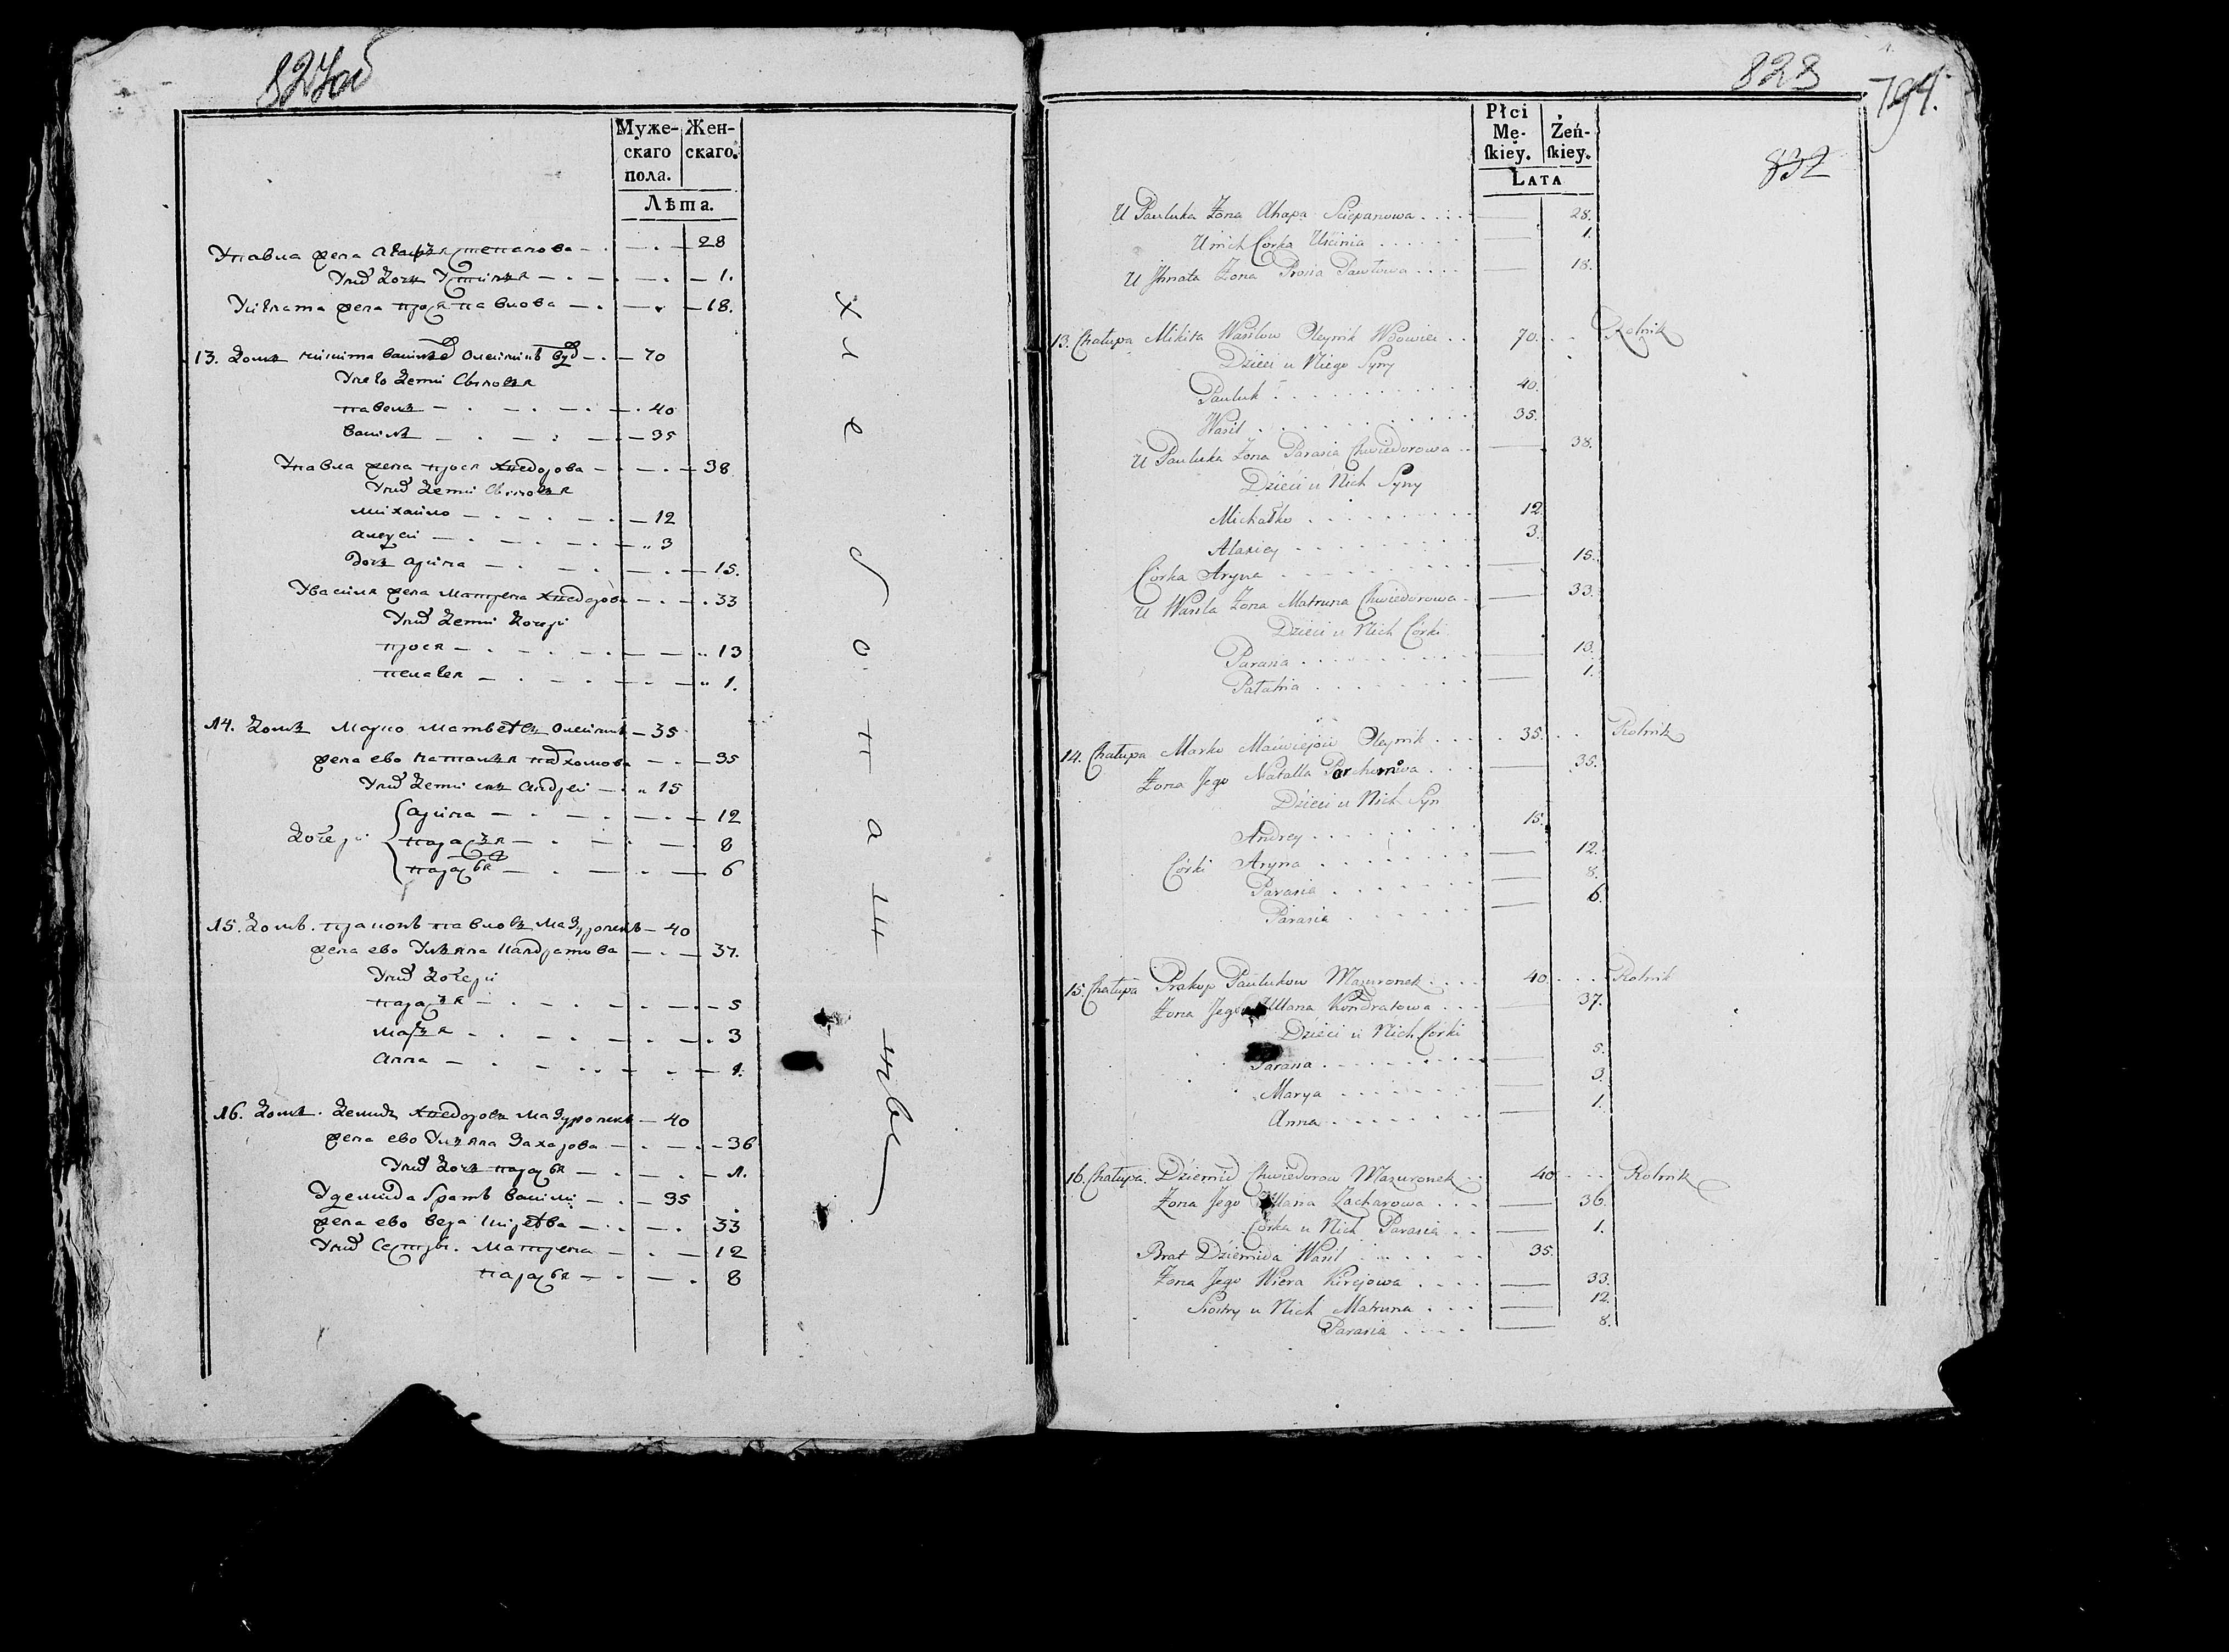 827об
Муже-
скаго
пола.
Жен-
скаго.
Лѣта.
Упавла жена Агафья Степанова 28
Уних дочь Устинья 1.
Уигната жена Прося Павлова 18.
13. Домъ Никита Василев Олейникъ вдов 70
Унево дети Сыновья
Павелъ 40
Василь 35
Упавла жена Прося Хведорова 38
Уних дети Сыновья
Михайло 12
Алексей 3
Дочь Арина 15.
Увасиля жена Матрена Хведорова 33
Уних дети Дочери
Прося 13
Пелагея 1.
14. Домъ Марко Матвеевъ Олейникъ 35
жена ево Наталья Пархомова 35
Уних дети сынъ Андрей 15
Дочери
Арина 12
Парасья 8
Парасья 6
15. Домъ Пракопъ Павловъ Мазуронекъ 40
жена ево Ульяна Кандратова 37.
Уних Дочери
Парасья 5
Марья 3
Анна 1.
16. Домъ Демидъ Хведоровъ Мазуронекъ 40
жена ево Ульяна Захарова 36
Уних дочь Парасья 1.
Удемида братъ Василий 35
жена ево Вера Киреева 33
Уних Сестры Матрена 12
Парасья 8
хлебопашцы
828
794.
832
Płci
Mę-
ſkiey.
Żeń-
ſkiey.
LATA
U Pauluka Żona Ahapa Sciepanowa 28.
U nich Córka Uścinia 1.
U Jhnata Żona Prosia Pawłowa 18.
13. Chałupa Mikita Wasilow Oleynik Wdowiec 70. Rolnik
Dzieci u Niego Syny
Pauluk 40.
Wasil 35.
U Pauluka Żona Parasia Chwiedorowa 38.
Dzieci u Nich Syny
Michałko 12.
Alaxiey 3.
Córka Aryna 15.
U Wasila Żona Matruna Chwiedorowa 33.
Dzieci u Nich Córki
Parasia 13.
Pałahia 1.
14. Chałupa Marko Maćwiejow Oleynik 35. Rolnik
Żona Jego Natalla Parchomowa 35.
Dzieci u Nich Syn
Andrey 15.
Córki Aryna 12.
Parasia 8.
Parasia 6.
15. Chałupa Prakop Paulukow Mazuronek 40. Rolnik
Żona Jego Ullana Kondratowa 37.
Dzieci u Nich Córki
Parasia 5.
Marya 3.
Anna 1.
16. Chałupa. Dziemid Chwiedorow Mazuronek 40. Rolnik
Żona Jego Ullana Zacharowa 36.
Córka u Nich Parasia 1.
Brat Dziemida Wasil 35.
Żona Jego Wiera Kirejowa 33.
Siostry u Nich Matruna 12.
Parasia 8.